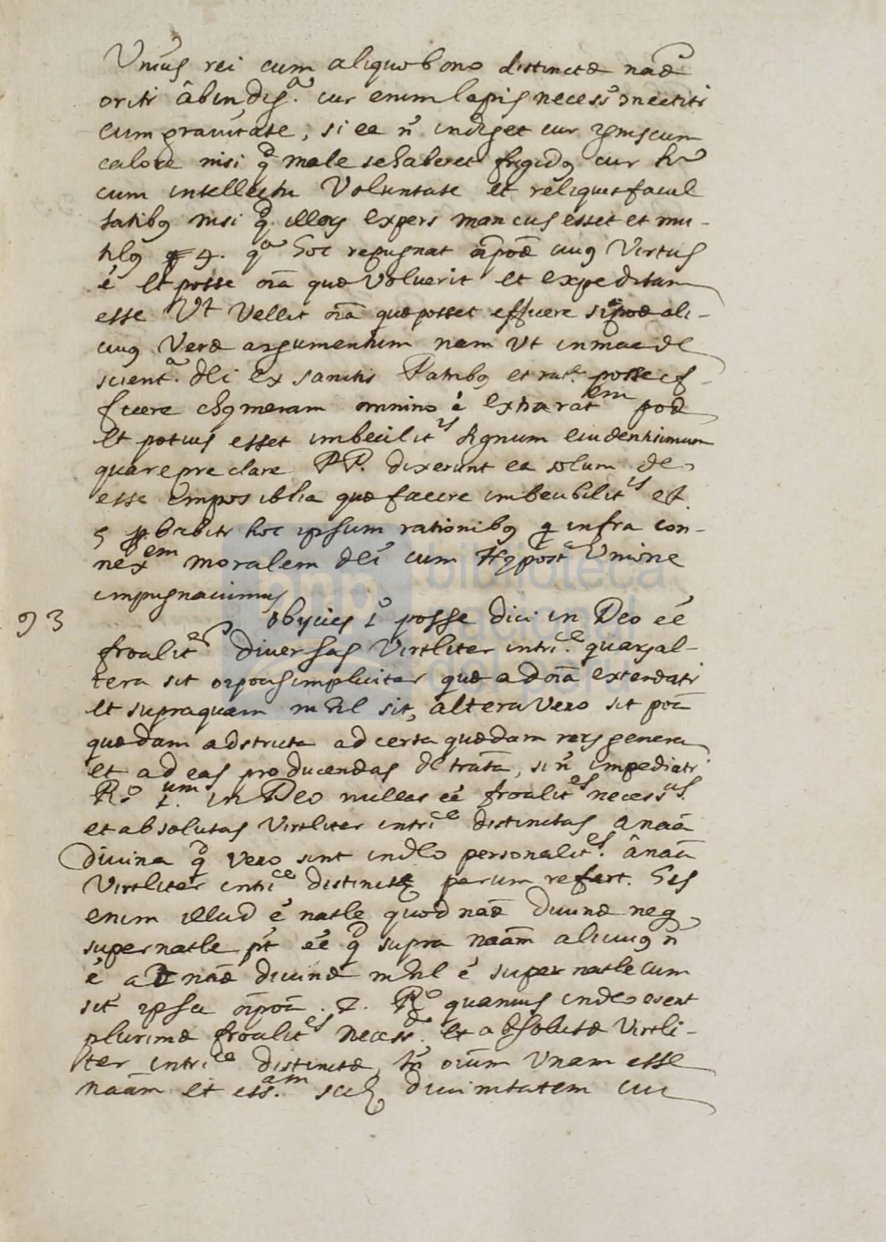 Unius rei cum aliquo bono distinctæ naæ
oriri âb indig.ª cur enim lapis necess.º
cum gravitate, si ea ñ indiget cur ignis cum
calore nisi q male se haberet frigidq cur h
cum intellectu Voluntate et reliquis facul
tatibq nisi q illoɣ expers mancus esset et mu-
tilq 4. qª hoc repugnat cuiq Virtus
é et posse oiã quæ voluerit et expeditam
esse Ut Vellet oiã quæ posset efficere ali-
cuiq Veræ argumentum nam Ut
scient.ª dei ex sanctis Patribq et rat. posse ef-
ficere chymeram omnino é extra ratem
et potius esset imbecilitis signum evidentissimum
quare preclare PP. dixerunt ea solum de
esse impossiblia quæ facere imbecilitis est.
5 hoc ipsum rationibq q infra con-
nexem moralem dei cum Hypostª Unione
impugnavimus
93 obijcies 1º posse dici in Deo eé
froalites diversas Virtliter intrice quaɣ al-
tera sit simpliciter quæ ad oiã extendati
et supra quam nihil sit, altera vero sit poã
quædam adstricta ad certa quædam rerɣ genera
et ad eas producendas si ñ impediati
Rº 1um in Deo nullas eé froalites necessas
et absolutas Virtliter intrice distinctas a naã
divina q vero sint in deo personalites. â naã
Virtliter intrice distinctæ parum refert. his
enim illud é natle quod naæ divinæ neq
supernatle pt eé q supra naãm alicuiq ñ
é at naæ divinæ nihil é supernatle cum
sit ipsa 2. Rº quamvis in deo essent
plurimæ froalites necess. et absolutæ Virtli-
ter intrice distinctæ, tñ oium Unam esse
naãm et ess.am divinitatem cui